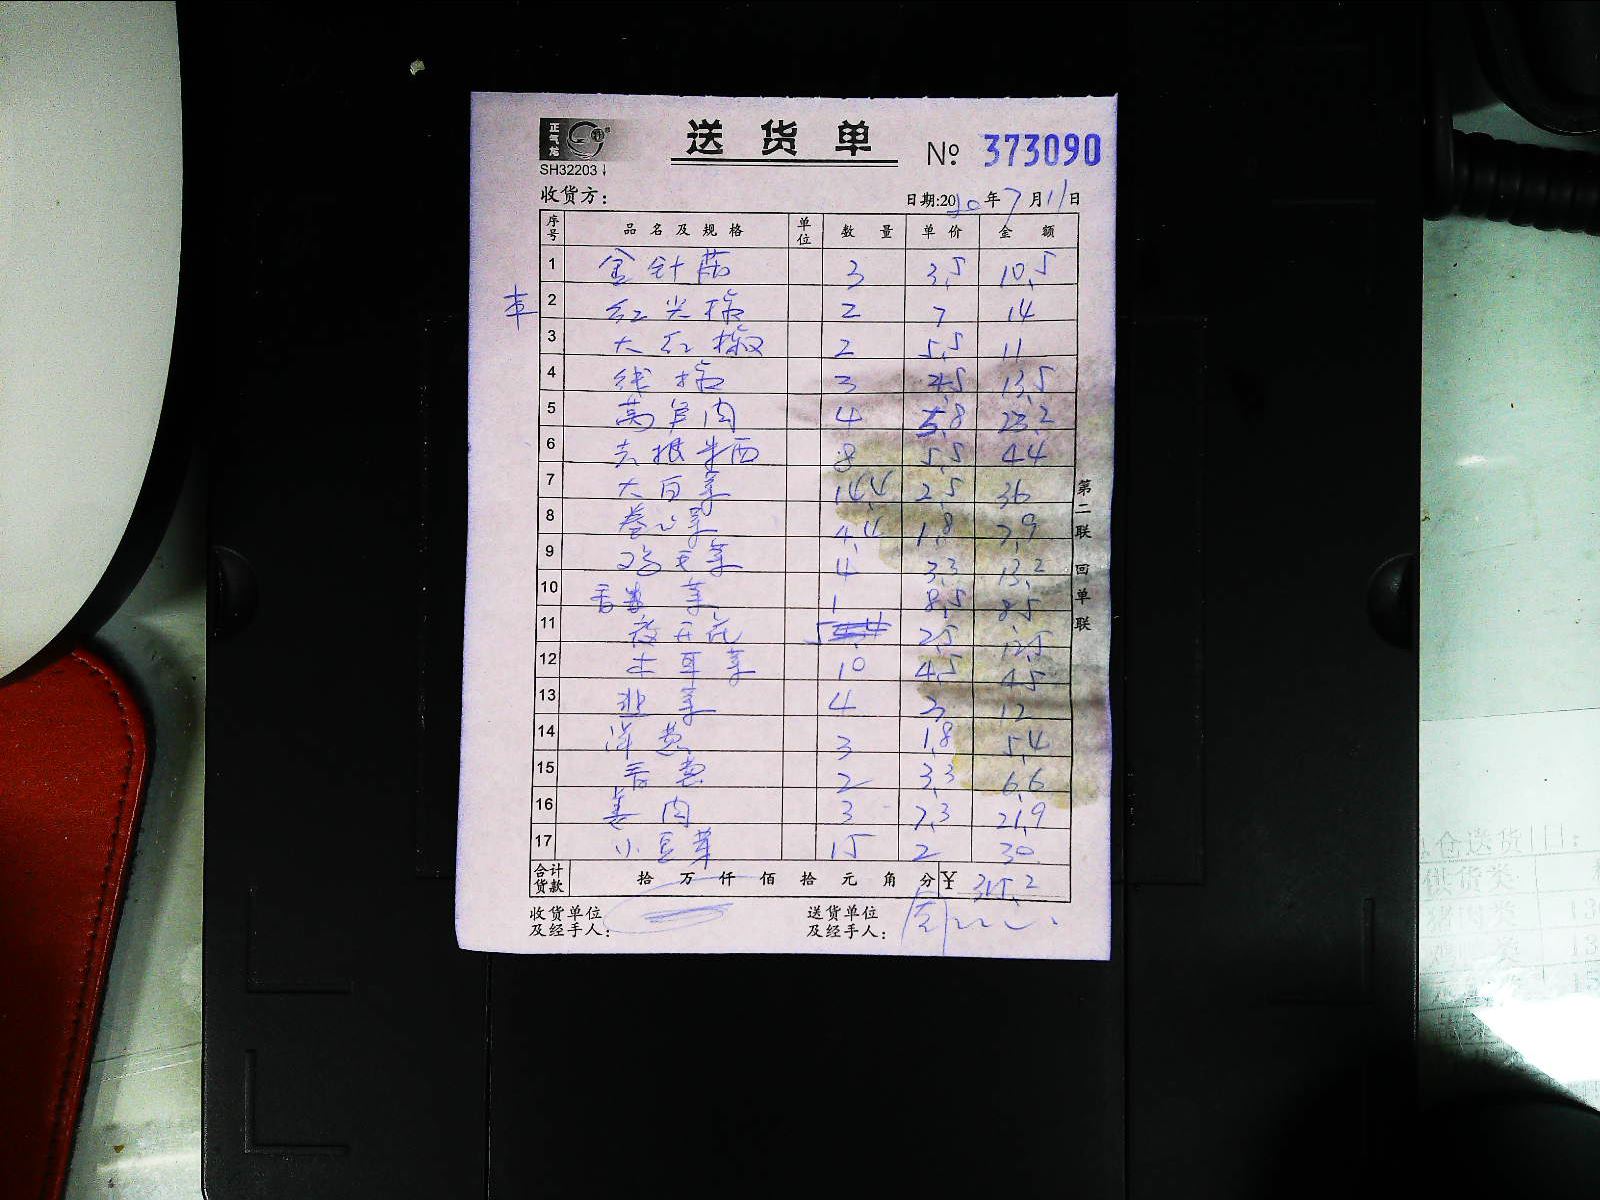 正气龙
送货单 № 373090
SH32203
收货方： 日期:2020年7月11日
序号 品名及规格 单位 数量 单价 金额
1 金针菇 3 3.5 10.5
丰
2 红尖椒 2 7 14
3 大红椒 2 5.5 11
4 线椒 3 4.5 13.5
5 莴笋肉 4 5.8 23.2
6 去根米西 8 5.5 44
7 大白菜 14.4 2.5 36
8 卷心菜 4.4 1.8 7.9
9 鸡毛菜 4 3.3 13.2
10 香菜 1 8.5 8.5
11 夜开花 5 2.5 12.5
12 木耳菜 10 4.5 45
13 韭菜 4 3 12
14 洋葱 3 1.8 5.4
15 香葱 2 3.3 6.6
16 姜肉 3 7.3 21.9
17 小豆芽 15 2 30
合计货款 拾万仟佰拾元角分 ¥ 315.2
收货单位及经手人： 送货单位及经手人：
第二联 回单联
仓送货
供货类
猪肉类